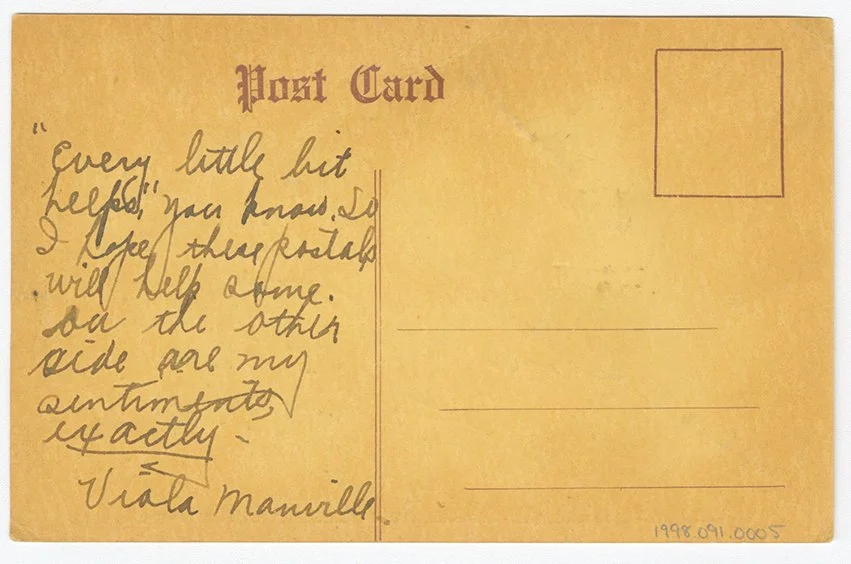 Post Card
"Every little bit
helps," you know. So
I hope these postals
will help some.
On the other
side are my
sentiments,
exactly -
Viola Manville
1998.091.0005